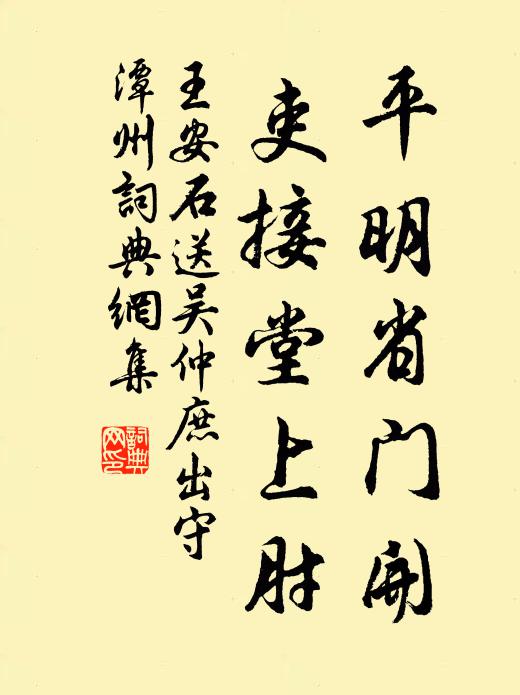 平明省门開
吏接堂上肘
王安石送吴仲庶出守
潭州詞典網集
詞典
网印